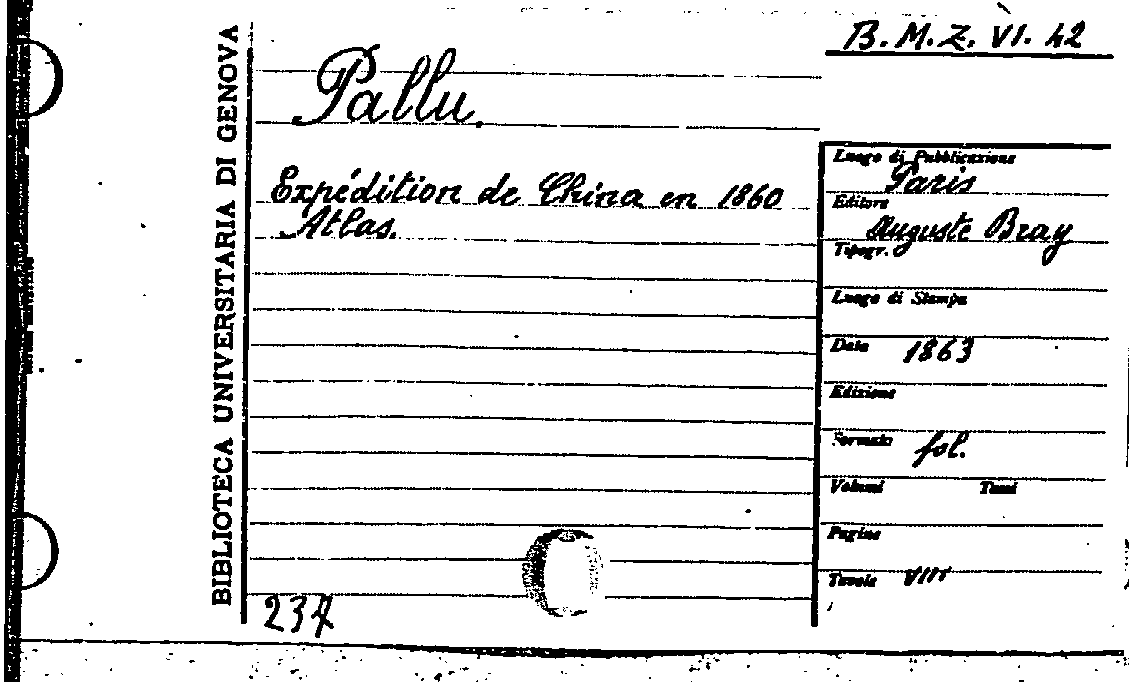 B.M.Z. VI. 42
BIBLIOTECA UNIVERSITARIA DI GENOVA
Pallu.
Expédition de China en 1860
Atlas.
Luogo di Pubblicazione
Paris
Editore
Auguste Bray
Tipogr.
Luogo di Stampa
Data 1863
Edizione
Formato fol.
Volumi Tomi
Pagine
Tavole VIII
237